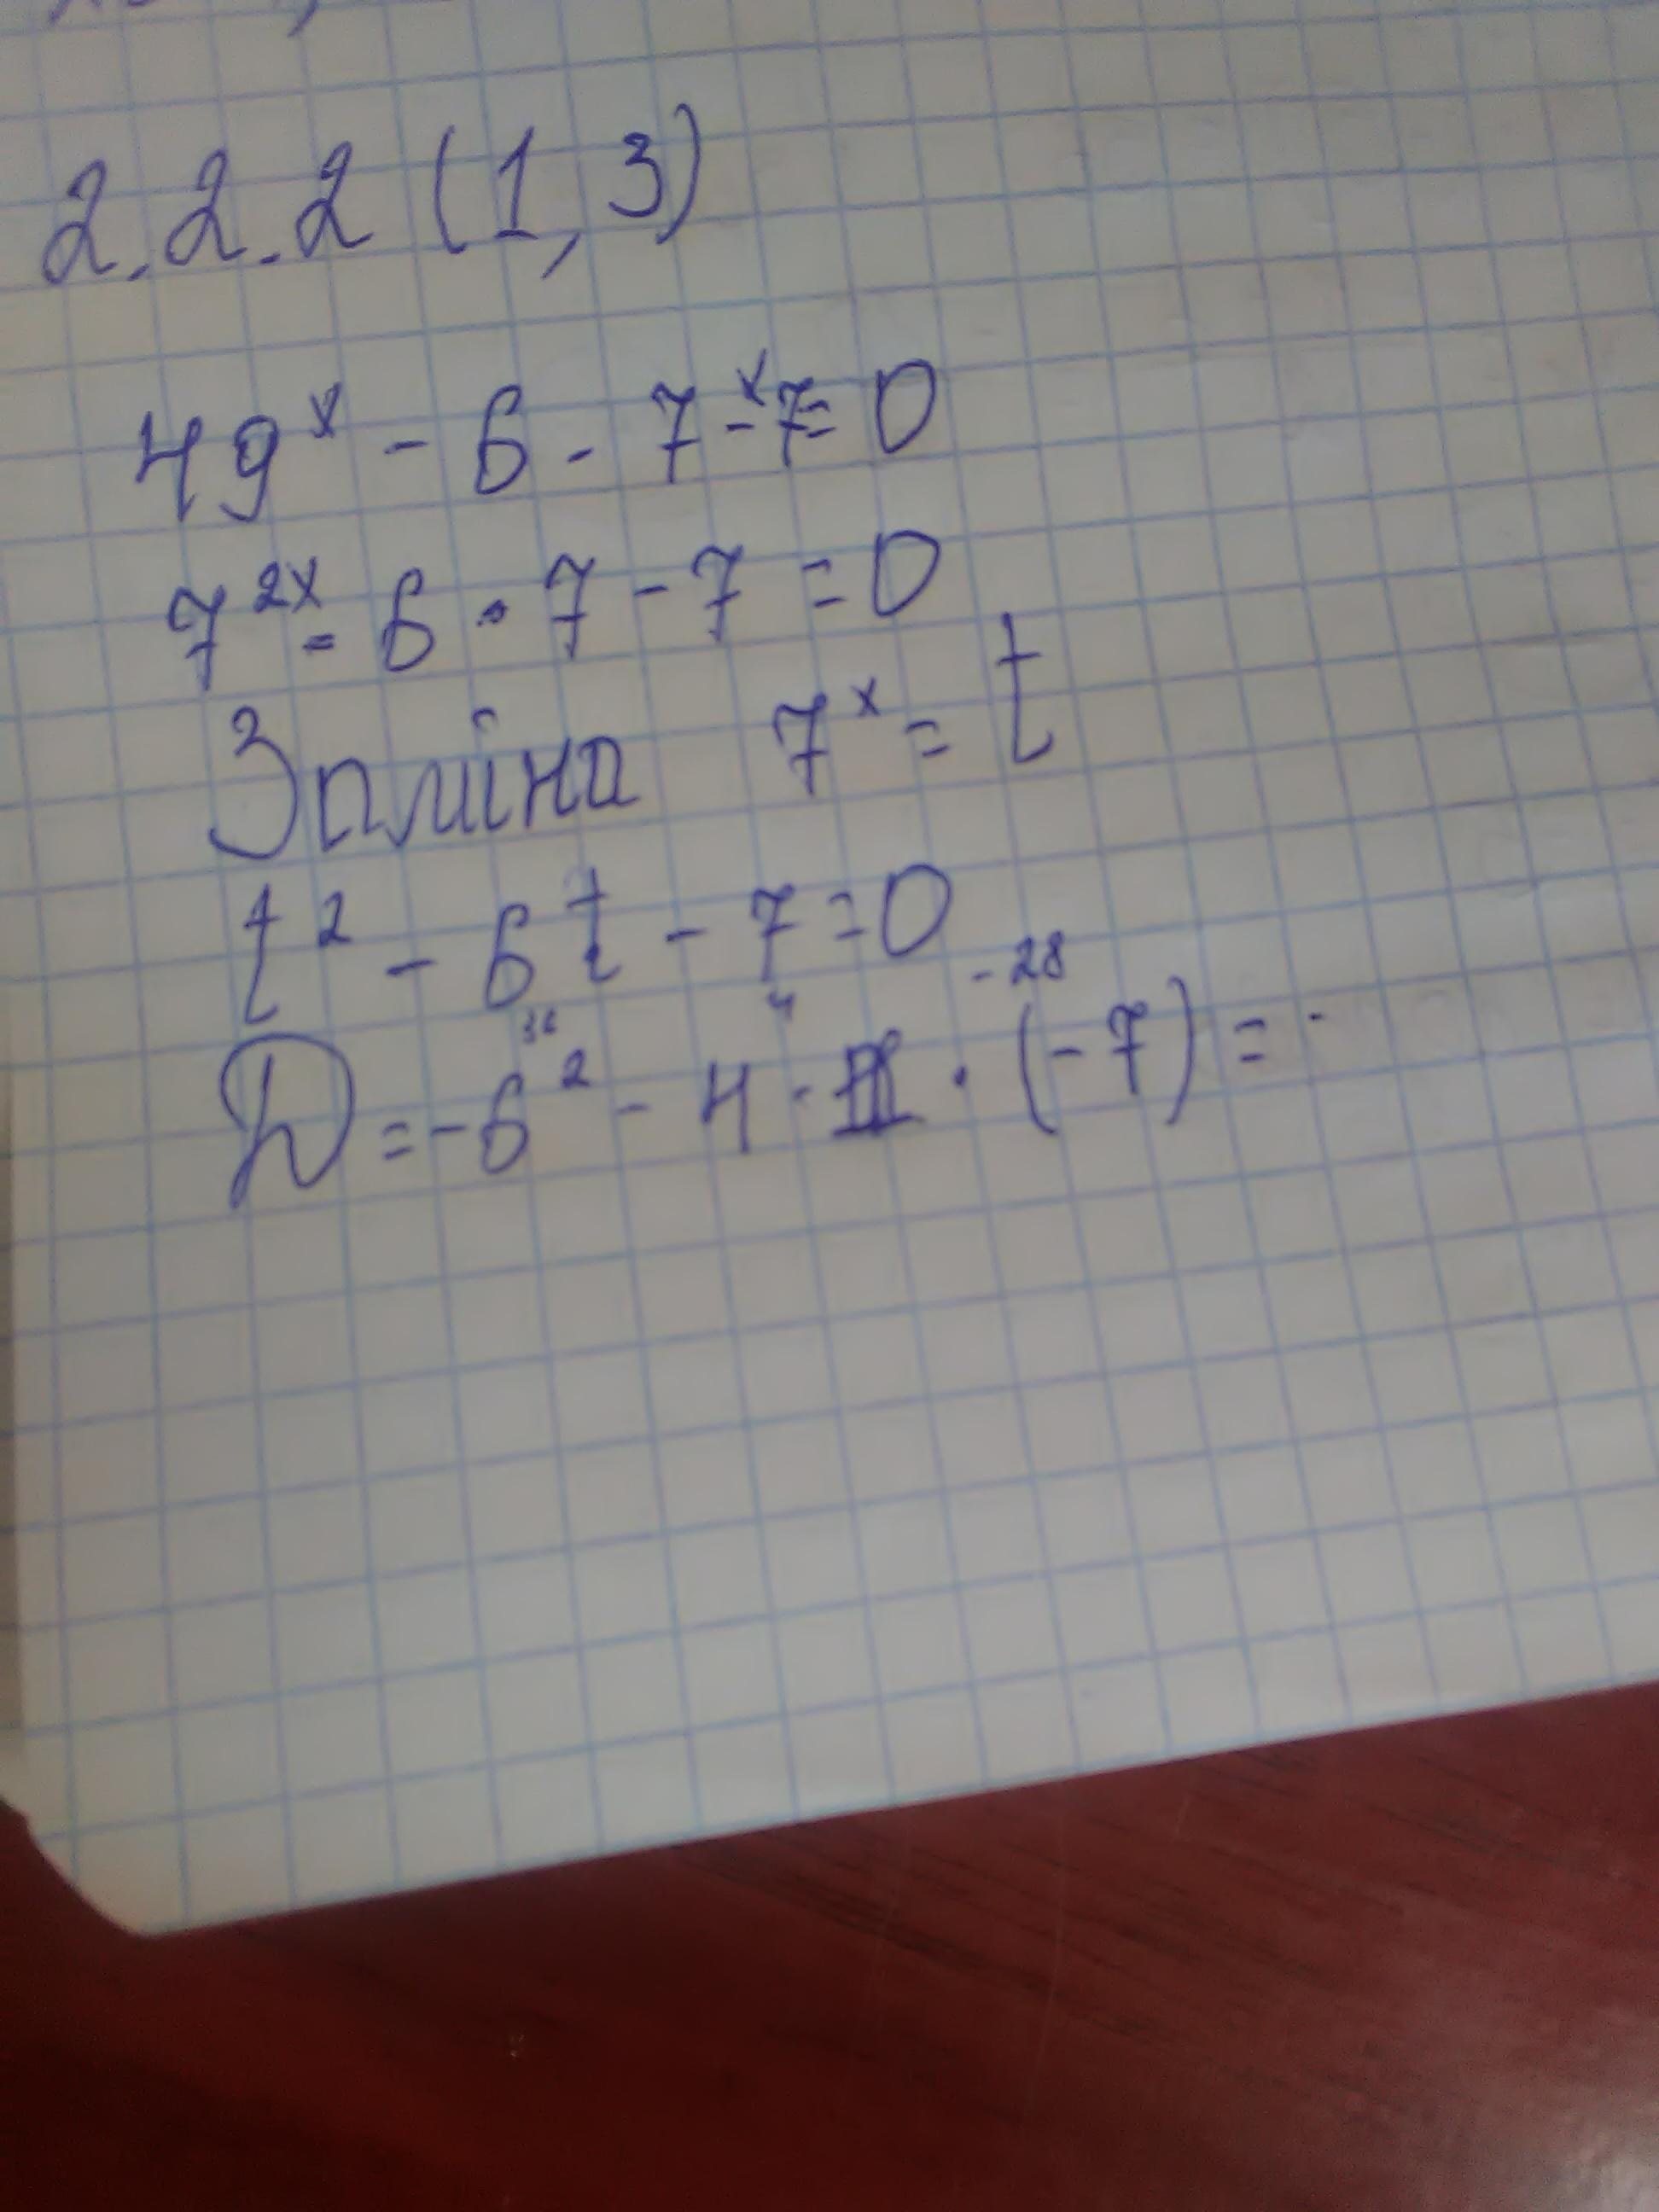 2.2.2 (1, 3)
49ˣ - 6 · 7ˣ - 7 = 0
7²ˣ - 6 · 7 - 7 = 0
Заміна 7ˣ = t
t² - 6t - 7 = 0
36 4 -28
D = -6² - 4 · 1 · (-7) =